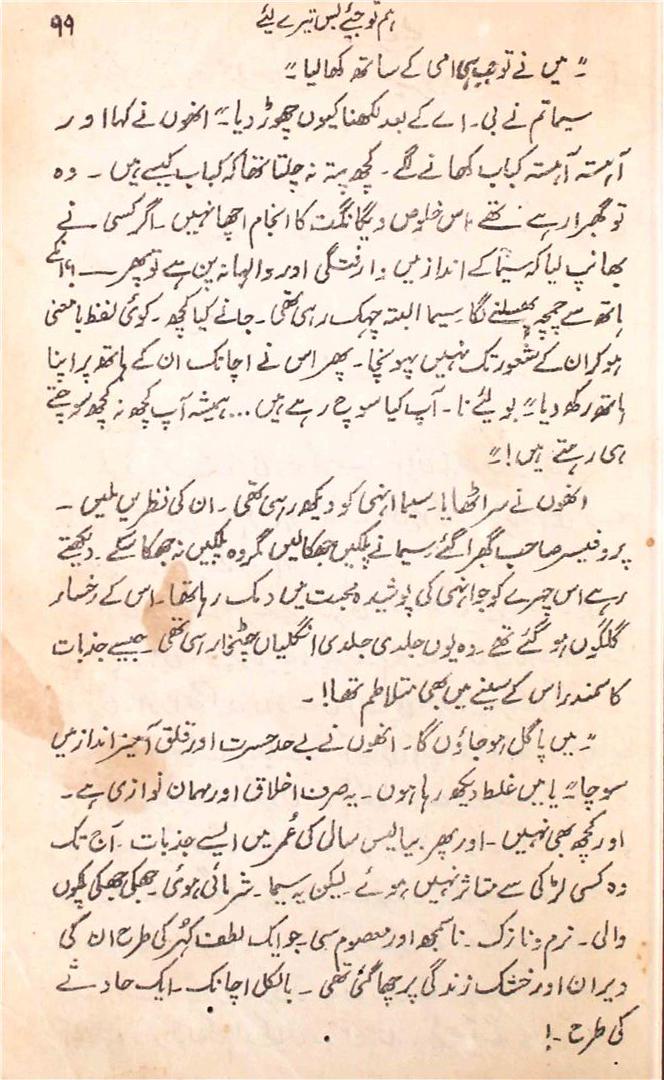 ہم تو جئے بس تیرے لئے
۹۹
"میں نے تو جب ہی امی کے ساتھ کھا لیا"
سیما تم نے بی۔ اے کے بعد لکھنا کیوں چھوڑ دیا" انھوں نے کہا اور
آہستہ آہستہ کباب کھانے لگے۔ کچھ پتہ نہ چلتا تھا کہ کباب کیسے ہیں۔ وہ
تو گھبرا رہے تھے، اس خلوص و یگانگت کا انجام اچھا نہیں۔ اگر کسی نے
بھانپ لیا کہ سیما کے انداز میں وارفتگی اور والہانہ پن ہے تو پھر —
ہاتھ سے چمچہ پھسلنے لگا۔ سیما البتہ چہک رہی تھی۔ جانے کیا کچھ۔ کوئی لفظ بامعنی
ہو کر ان کے شعور تک نہیں پہونچا۔ پھر اس نے اچانک ان کے ہاتھ پر اپنا
ہاتھ رکھ دیا" بولئے نا۔ آپ کیا سوچ رہے ہیں... ہمیشہ آپ کچھ نہ کچھ سوچتے
ہی رہتے ہیں!"
انھوں نے سر اٹھایا۔ سیما انہی کو دیکھ رہی تھی۔ ان کی نظریں ملیں۔
پروفیسر صاحب گھبرا گئے، سیما نے پلکیں جھکا لیں مگر وہ پلکیں نہ جھکا سکے۔ دیکھتے
رہے اس چہرے کو جو انہی کی پوشیدہ محبت میں دمک رہا تھا۔ اس کے رخسار
گلگوں ہو گئے تھے۔ وہ یوں جلدی جلدی انگلیاں چٹخا رہی تھی۔ جیسے جذبات
کا سمندر اس کے سینے میں بھی متلاطم تھا!۔
"میں پاگل ہو جاؤں گا۔ انھوں نے بے حد حسرت اور قلق آمیز انداز میں
سوچا" یا میں غلط دیکھ رہا ہوں۔ یہ صرف اخلاق اور مہمان نوازی ہے۔
اور کچھ بھی نہیں۔ اور پھر بیالیس سال کی عُمر میں ایسے جذبات۔ آج تک
وہ کسی لڑکی سے متاثر نہیں ہوئے لیکن یہ سیما۔ شرمائی ہوئی۔ جھکی جھکی پلکوں
والی۔ نرم و نازک۔ ناسمجھ اور معصوم سی۔ جو ایک لطف کُہر کی طرح ان کی
ویران اور خشک زندگی پر چھا گئی تھی۔ بالکل اچانک۔ ایک حادثے
کی طرح۔!